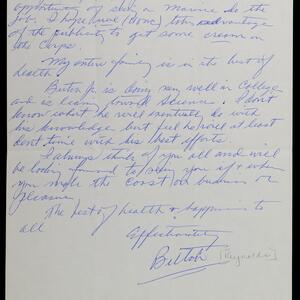 opportunity of such a Marine do the
job. I hope we (the) take advantage
of the publicity to get some cream in
the Corps.
My entire family is in its best of
health.
Butch Jr. is doing very well in College
and is leaning toward Science. I don't
know what he will eventually do with
his knowledge but feel he will at least
don't time with his best efforts.
I always think of you all and will
be looking forward to seeing you if & when
you make the coast on business or
pleasure.
The best of health & happiness to
all
Affectionately
Butch [Reynolds]